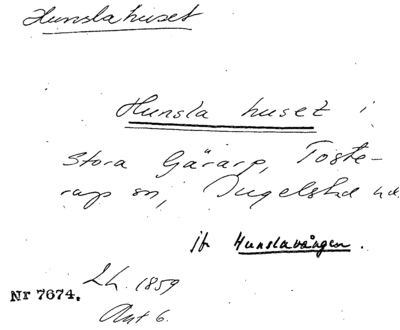 Hunslahuset
Hunsla huset i
Stora Gärarp, Toste-
rap sn, Ingelstad hd.
jfr Hunslavången.
Lh. 1859
Nr 7674.
Akt 6.